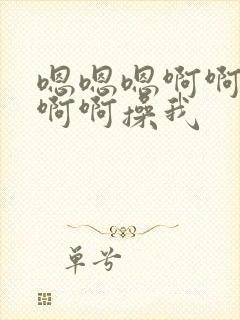 嗯嗯嗯啊啊
啊啊操我
单兮